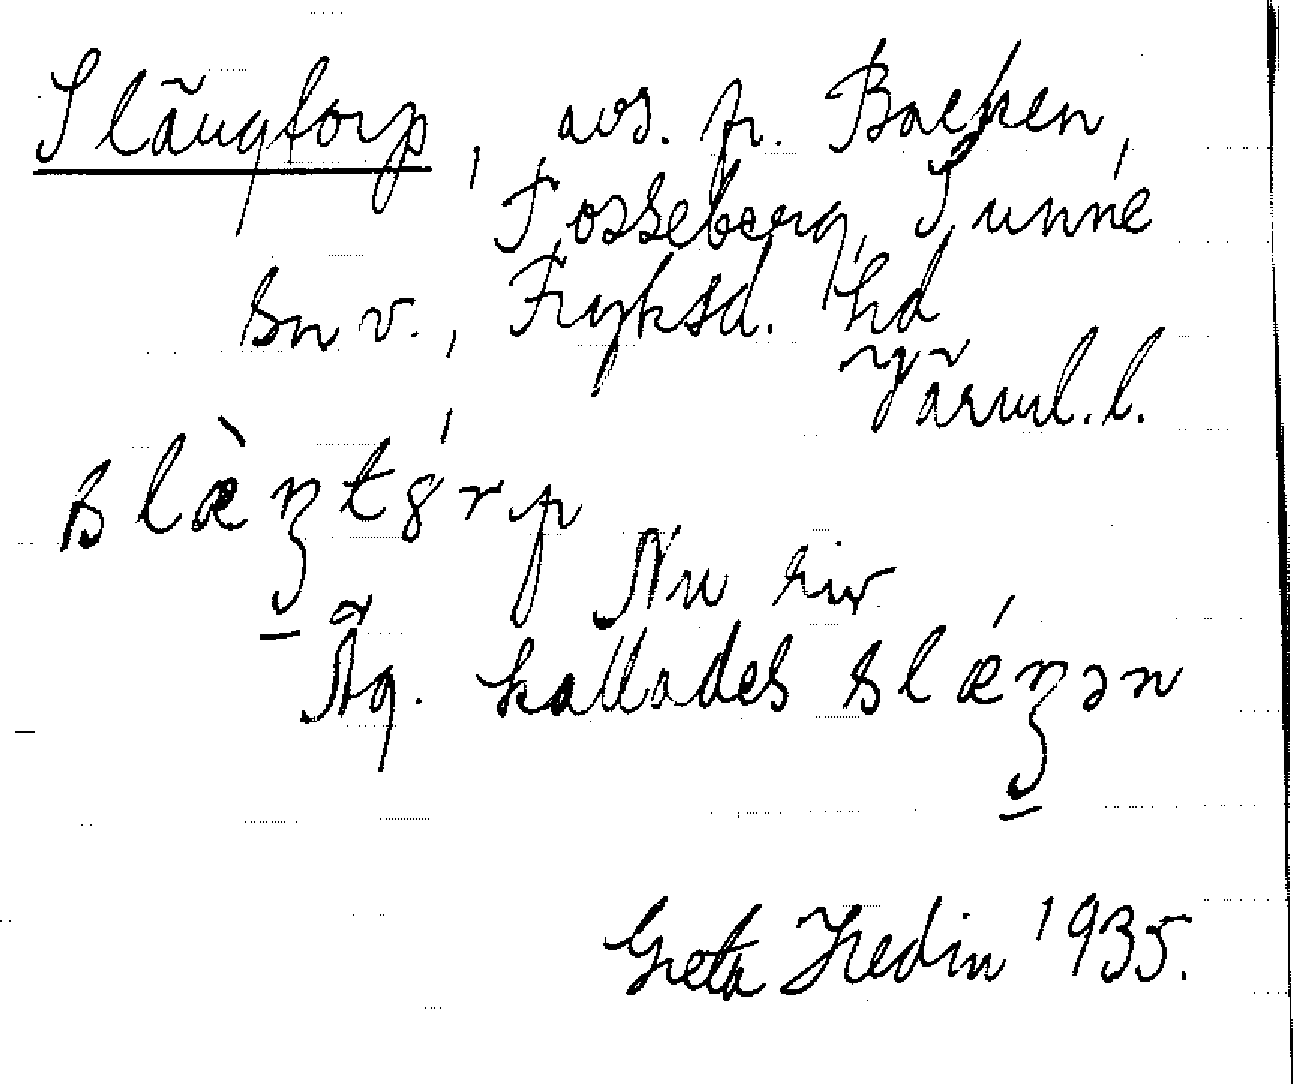 Slängtorp, avs. fr. Backen,
Fosseberg, Sunne
sn v., Fryksd. hd
Värml. l.
slæ̀ŋtórp
Nu riv
Äg. kallades slǽŋən
Greta Hedin 1935.